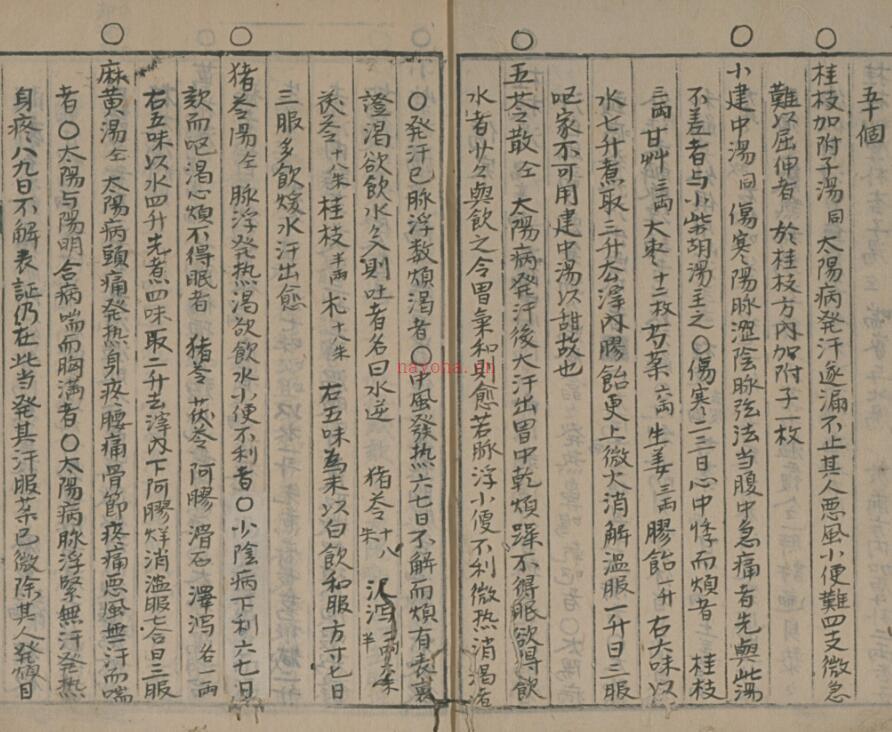 五十個
桂枝加附子湯同 太陽病発汗遂漏不止其人悪風小便難四支微急
難以屈伸者 於桂枝方內加附子一枚
小建中湯同 傷寒陽脉濇陰脉弦法当腹中急痛者先與此湯
不差者与小柴胡湯主之〇傷寒二三日心中悸而煩者 桂枝
三両 甘艸 三両 大枣 十二枚 芍薬 六両 生姜 三両 膠飴 一升 右六味以
水七升煮取三升去滓內膠飴更上微火消解温服一升日三服
呕家不可用建中湯以甜故也
五苓散 仝 太陽病発汗後大汗出胃中乾煩躁不得眠欲得飲
水者少々與飲之令胃氣和則愈若脉浮小便不利微热消渴者
〇発汗已脉浮数煩渴者〇中風發热六七日不解而煩有表裏
證渴欲飲水々入則吐者名曰水逆 猪苓 十八朱 沢瀉 一両六朱半
茯苓 十八朱 桂枝 半両 朮 十八朱 右五味為末以白飲和服方寸匕日
三服多飲煖水汗出愈
猪苓湯 仝 脉浮発热渴欲飲水小便不利者〇少陰病下利六七日
欬而呕渴心煩不得眠者 猪苓 茯苓 阿膠 滑石 澤瀉 各一両
右五味以水四升先煮四味取二升去滓內下阿膠烊消温服七合日三服
麻黄湯 仝 太陽病頭痛発热身疼腰痛骨節疼痛悪風無汗而喘
者〇太陽与陽明合病喘而胸満者〇太陽病脉浮緊無汗発热
身疼八九日不解表証仍在此当発其汗服薬已微除其人発煩目
nayona.cn